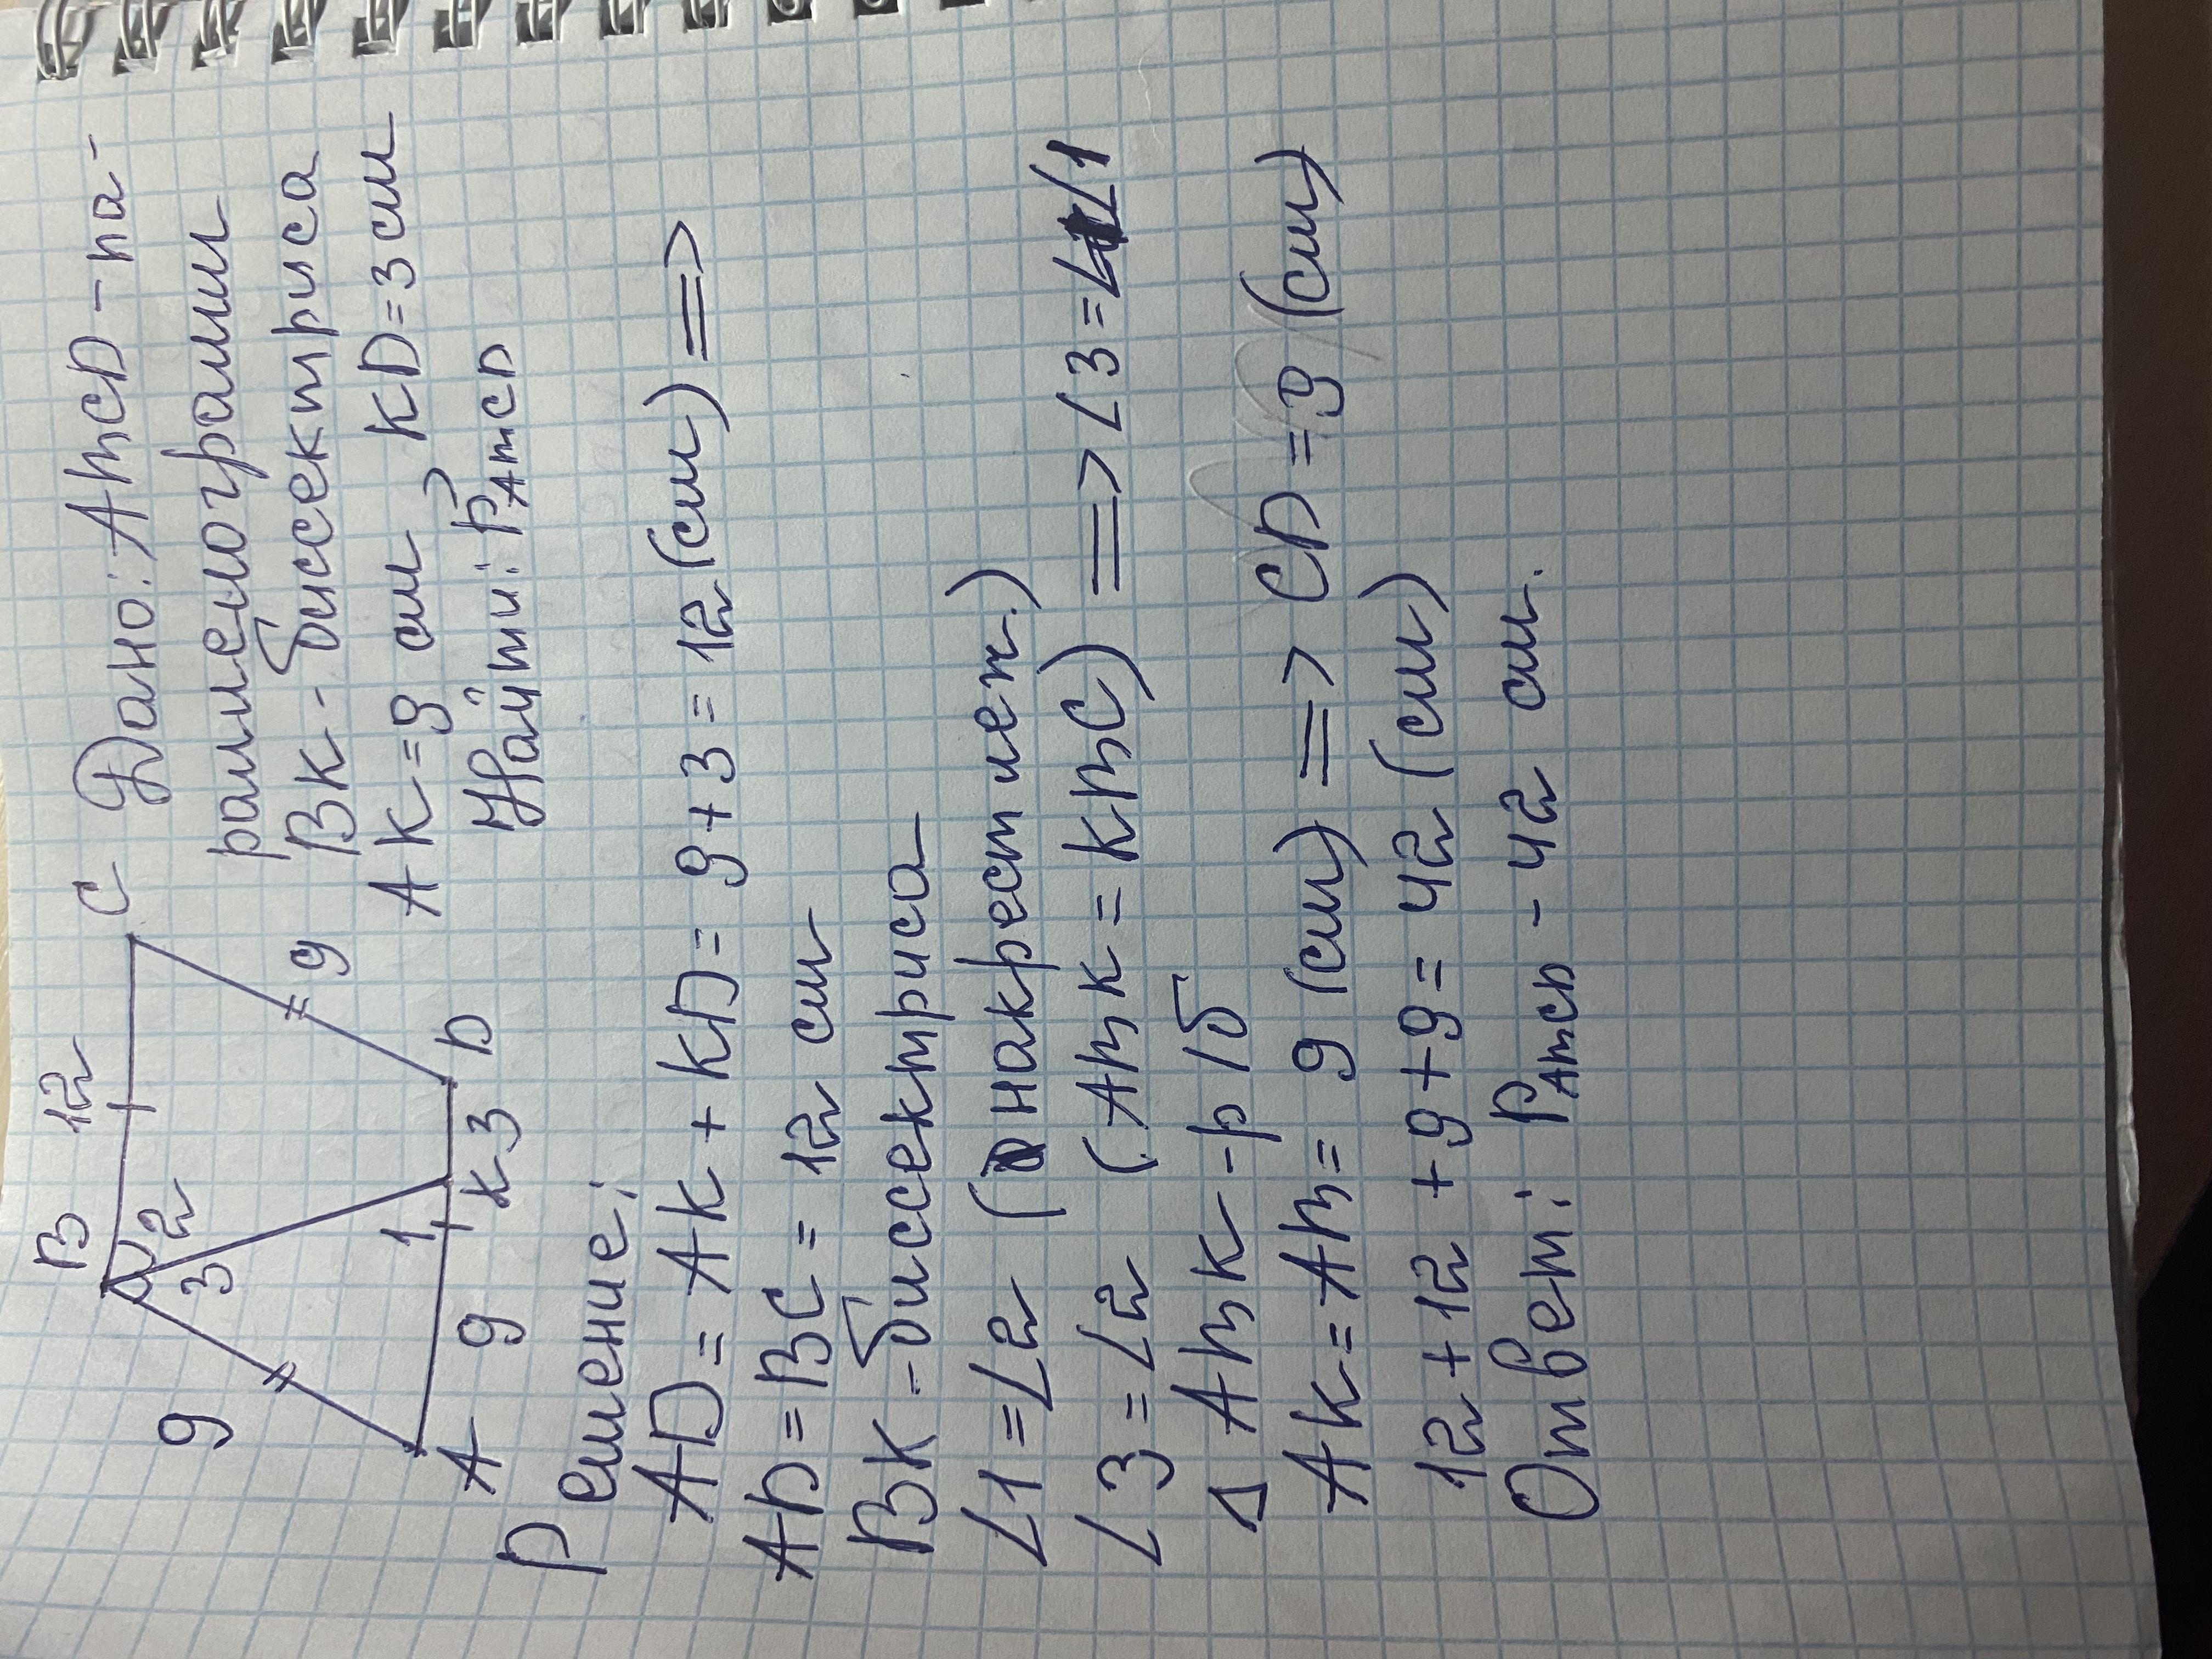 B 12 C
9
3 2
9
1
A 9 K 3 D
Дано: ABCD - па-
раллелограмм
BK - биссектриса
AK = 9 см, KD = 3 см
Найти: PABCD
Решение:
AD = AK + KD = 9 + 3 = 12 (см) =>
AD = BC = 12 см
BK - биссектриса
∠1 = ∠2 (накрест леж.)
∠3 = ∠2 (ABK = KBC) => ∠3 = ∠1
Δ ABK - р/б
AK = AB = 9 (см) => CD = 9 (см)
12 + 12 + 9 + 9 = 42 (см)
Ответ: PABCD - 42 см.